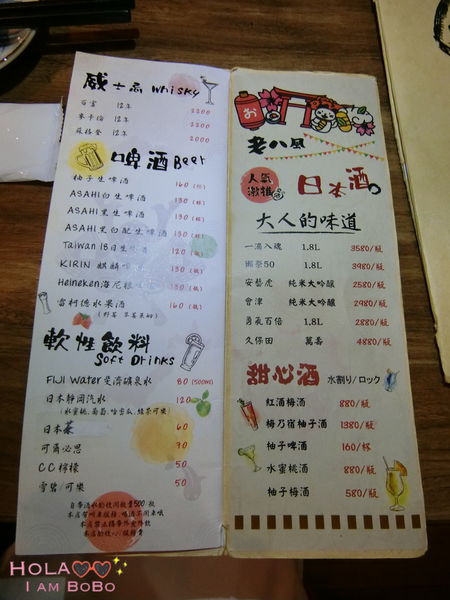 威士忌 Whisky
百富 12年 2200
麥卡倫 12年 2200
蘇格登 12年 2000
啤酒 Beer
柚子生啤酒 160
ASAHI白生啤酒 130
ASAHI黑生啤酒 130
ASAHI黑白配生啤酒 130
Taiwan 18日生啤酒 120 (瓶)
KIRIN 麒麟啤 130 (瓶)
Heineken海尼根 130 (瓶)
雷柯德水果酒 160 (瓶)
軟性飲料
Soft Drinks
FIJI Water 斐濟礦泉水 80 (500ml)
日本靜岡汽水 120
(水蜜桃、葡萄、哈密瓜、綠茶可樂)
日本茶 60
可爾必思 70
CC檸檬 50
雪碧/可樂 50
自帶酒水酌收開瓶費500/瓶
お
老八居
人氣
激推
日本酒
大人的味道
一滴入魂 1.8L 3580/瓶
獺祭50 1.8L 3980/瓶
安藝虎 純米大吟釀 2580/瓶
會津 純米大吟釀 2980/瓶
勇氣百倍 1.8L 2880/瓶
久保田 萬壽 4880/瓶
甜心酒 水割り/ロック
紅酒梅酒 880/瓶
梅乃宿柚子酒 1380/瓶
柚子啤酒 160/杯
水蜜桃酒 880/瓶
柚子梅酒 580/瓶
HOLA
I AM BOBO